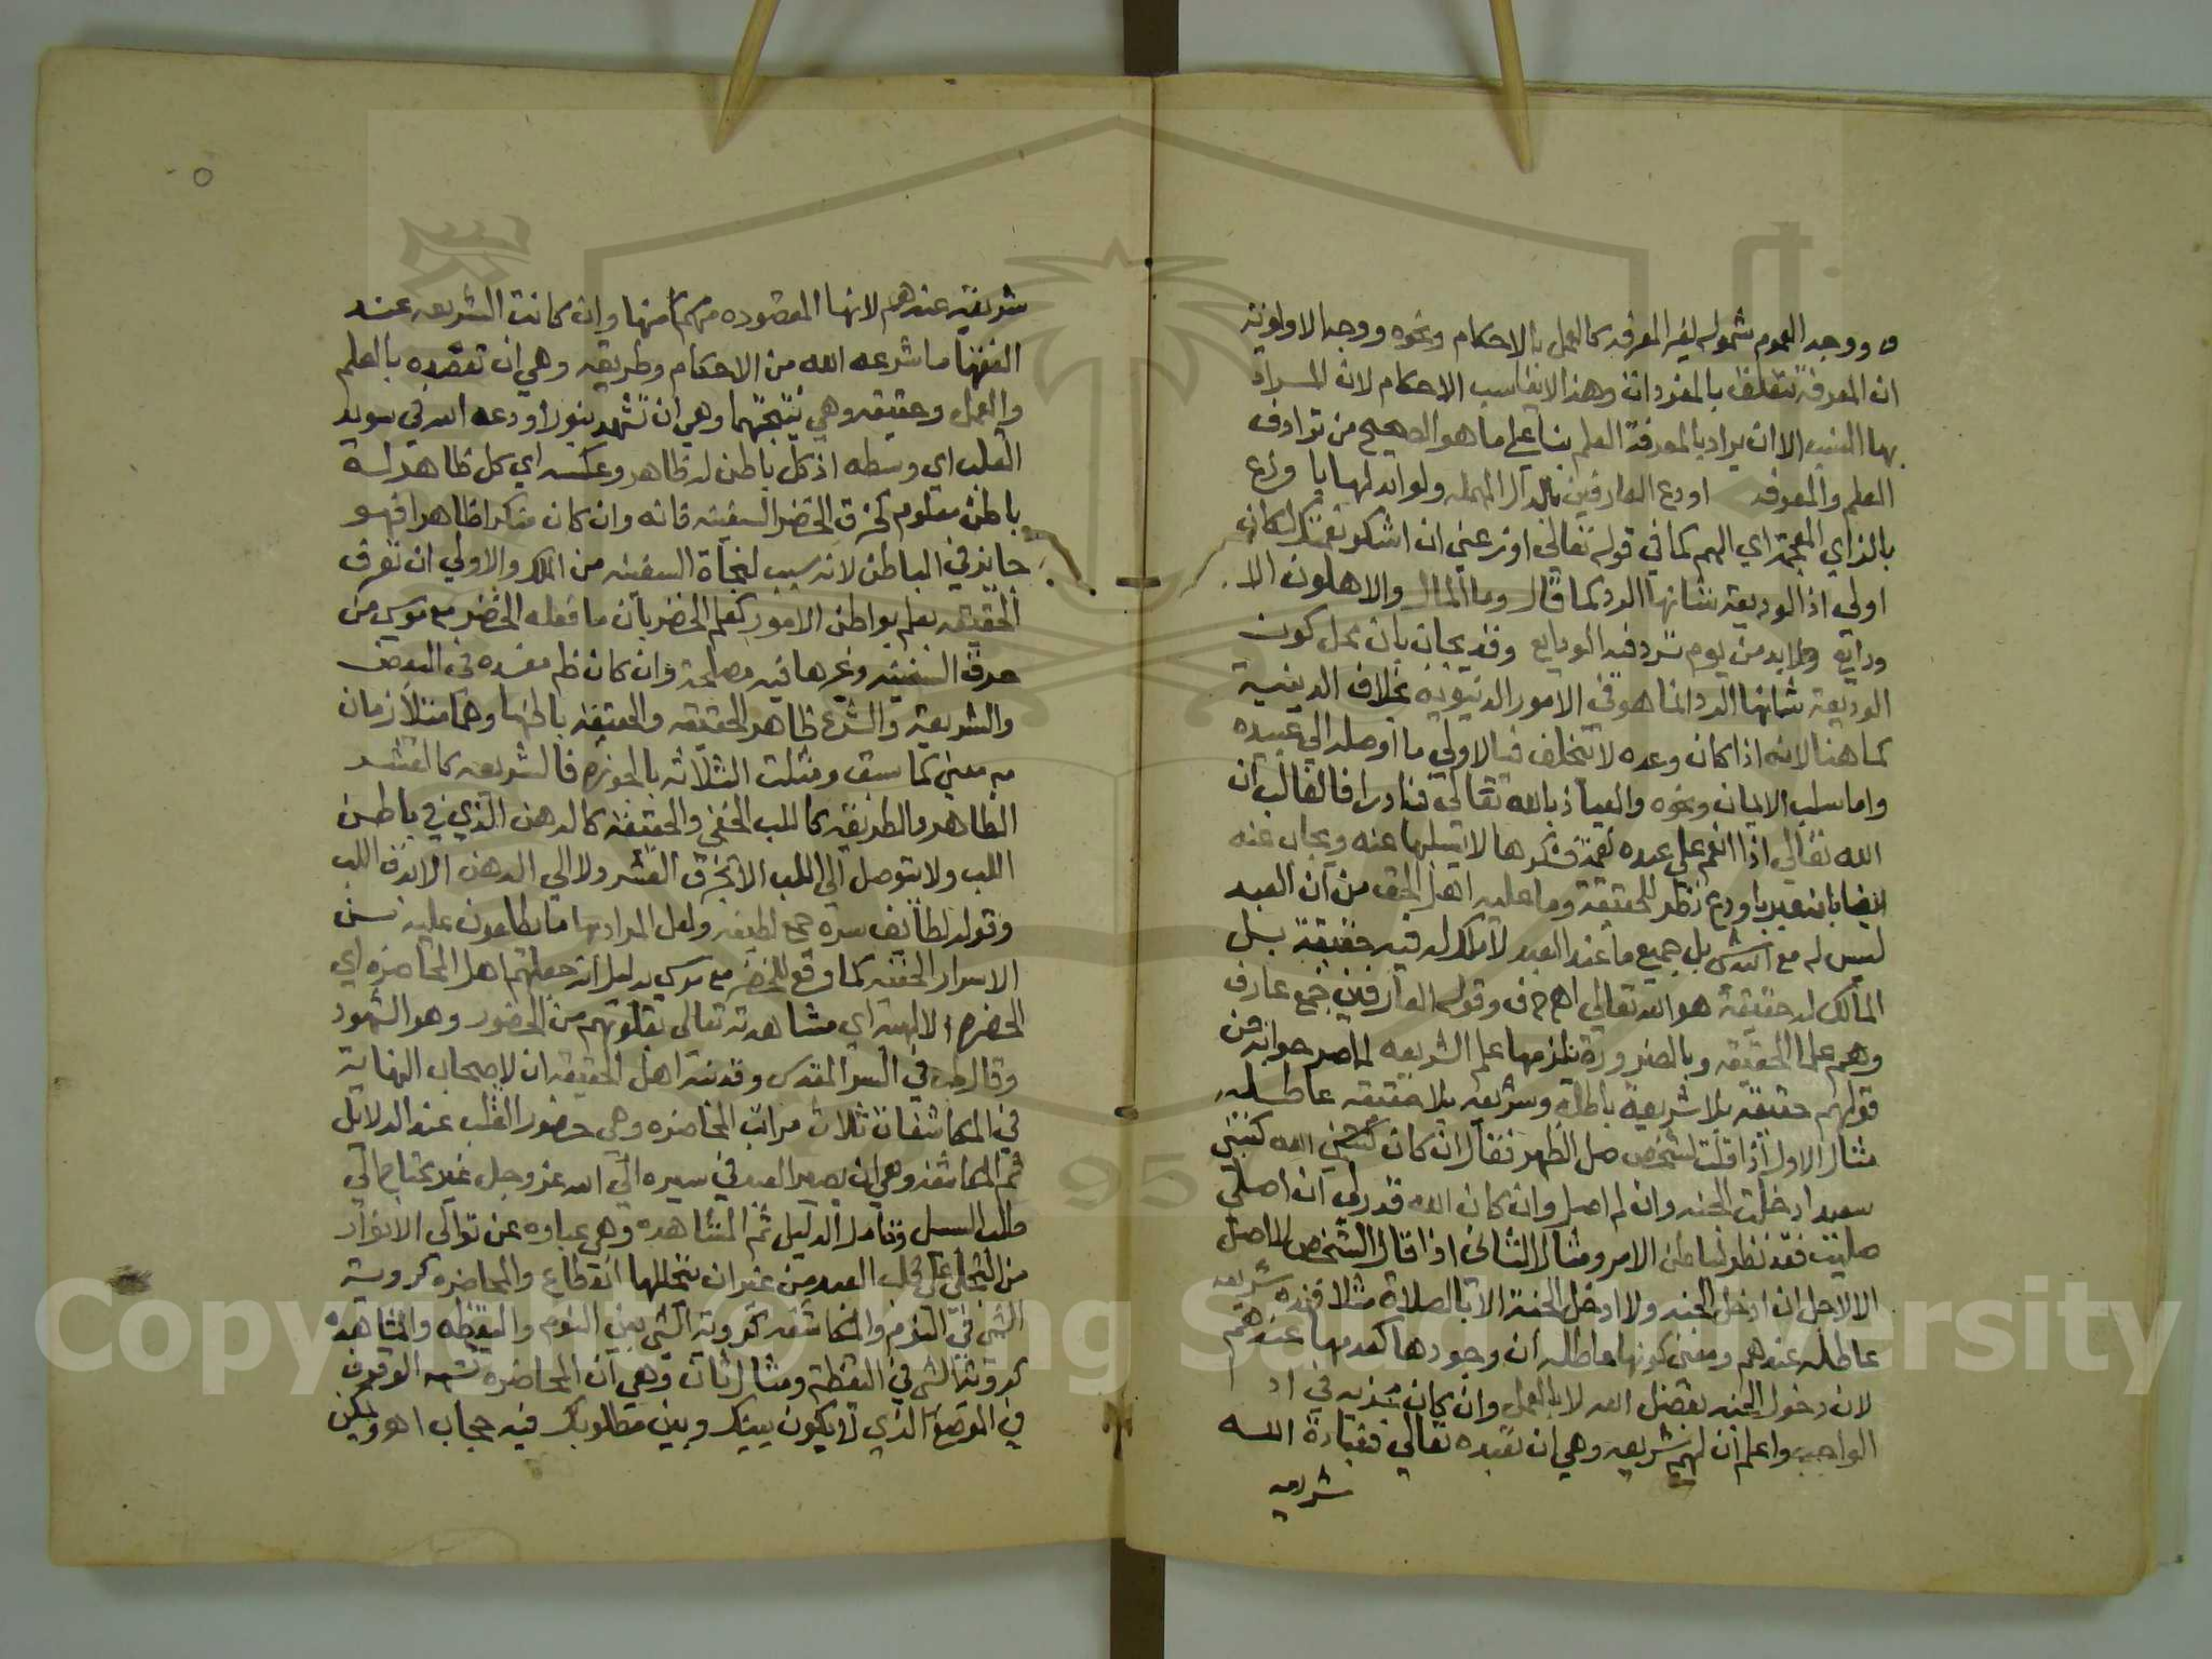 ووجه العموم شموله لغير المعرفه كالعمل بالاحكام ونحوه ووجه الاولويه
ان المعرفة تتعلق بالمفردات وهذا لا يناسب الاحكام لان المراد
بها النسب الا ان يراد بالمعرفة العلم بناء على ما هو الصحيح من ترادف
العلم والمعرفه اودع العارفين بالدال المهمله ولو ابدلها يا وزع
بالزاي المعجمة اي الهم كما في قوله تعالى اوزعني ان اشكر نعمتك لكان
اولى اذ الوديعة شانها الرد كما قال وما المال والاهلون الا
ودايع ولا بد من يوم ترد فيه الودايع وقد يجاب بان محل كون
الوديعة شانها الرد انما هو في الامور الدنيويه بخلاف الدينية
كما هنا لانه اذا كان وعده لا تتخلف فبالاولى ما اوصله الي عبيده
واما سلب الايمان ونحوه والعياذ بالله تعالى فنادر اذ الغالب ان
الله تعالي اذا انعم على عبده نعمة فشكرها لا يسلبها عنه ويجاب عنه
ايضا بانه عبر باودع نظر للحقيقة وما عليه اهل الحق من ان العبد
ليس له مع الله شي بل جميع ما عند العبد لا ملك له فيه حقيقة بل
المالك له حقيقة هو الله تعالي اهـ وقوله العارفين جمع عارف
وهم علما الحقيقه وبالضرورة تلزمها علم الشريعه لما صرحوا به من
قولهم حقيقه بلا شريعة باطلة وشريعه بلا حقيقه عاطله
مثال الاول اذا قلت لشخص صل الظهر فقال ان كان الله كتبني
سعيدا دخلت الجنه وان لم اصل وان كان الله قدر لي ان اصلي
صليت فقد نظر لباطن الامر ومثال الثاني اذا قال الشخص لا اصل
الا لاجل ان ادخل الجنه ولا ادخل الجنة الا بالصلاة مثلا فهذه شريعه
عاطله عندهم ومعنى كونها عاطله ان وجودها كعدمها عندهم
لان دخول الجنه بفضل الله لا بالعمل وان كان
الواجب واعلم ان لهم شريعه وهي ان تعبده تعالي فعبادة الله
شريعه
شريعة عندهم لانها المقصوده منها وان كانت الشريعه عند
الفقها ما شرعه الله من الاحكام وطريقه وهي ان تقصده بالعلم
والعمل وحقيقه وهي نتيجتهما وهي ان تشهد بنور اودعه الله في سويد
القلب اي وسطه اذ كل باطن له ظاهر وعكسه اي كل ظاهر له
باطن معلوم كخرق الخضر السفينه فانه وان كان منكرا ظاهرا فهو
جايز في الباطن لانه سبب لنجاة السفينه من الملك والاولي ان تعرف
الحقيقه بعلم بواطن الامور كعلم الخضر بان ما فعله الخضر مع موسى من
خرق السفينه وغيرها فيه مصلحة وان كان ظم مفسده في البعض
والشريعة والشرع ظاهر الحقيقه والحقيقه باطنها وهما متلازمان
معنى كما سبق ومثلت الثلاثه بالجوزه فالشريعه كالقشر
الظاهر والطريقه كاللب الخفي والحقيقة كالدهن الذي في باطن
اللب ولا يتوصل الي اللب الا بخرق القشر ولا الى الدهن الا بدق اللب
وقوله لطايف سره جمع لطيفه ولعل المراد بها ما يطلعون عليه من
الاسرار الخفيه كما وقع للخضر مع موسى بدليل انه جعلهم اهل المحاضره اي
الحضره الالهيه اي مشاهدته تعالى بقلوبهم من الحضور وهو الشهود
وقال في السر المقدس وقد نبه اهل الحقيقه ان لاصحاب النهاية
في المكاشفات ثلاث مراتب المحاضره وهي حضور القلب عند الدلايل
ثم المكاشفه وهي ان يصير العبد في سيره الي الله عز وجل غير محتاج الي
طلب السبيل وتامل الدليل ثم المشاهده وهي عباره عن توالى الانوار
من التجلي على قلب العبد من غير ان يتخللها انقطاع والمحاضره كروية
الشي في النوم والمكاشفه كرويه الشي بين النوم واليقظه والمشاهده
كروية الشي في اليقظه ومثال ثان وهي ان المحاضره تشبه الوقوف
في الموضع الذي لا يكون بينك وبين مطلوبك فيه حجاب اهـ ويمكن
Copyright © King Saud University